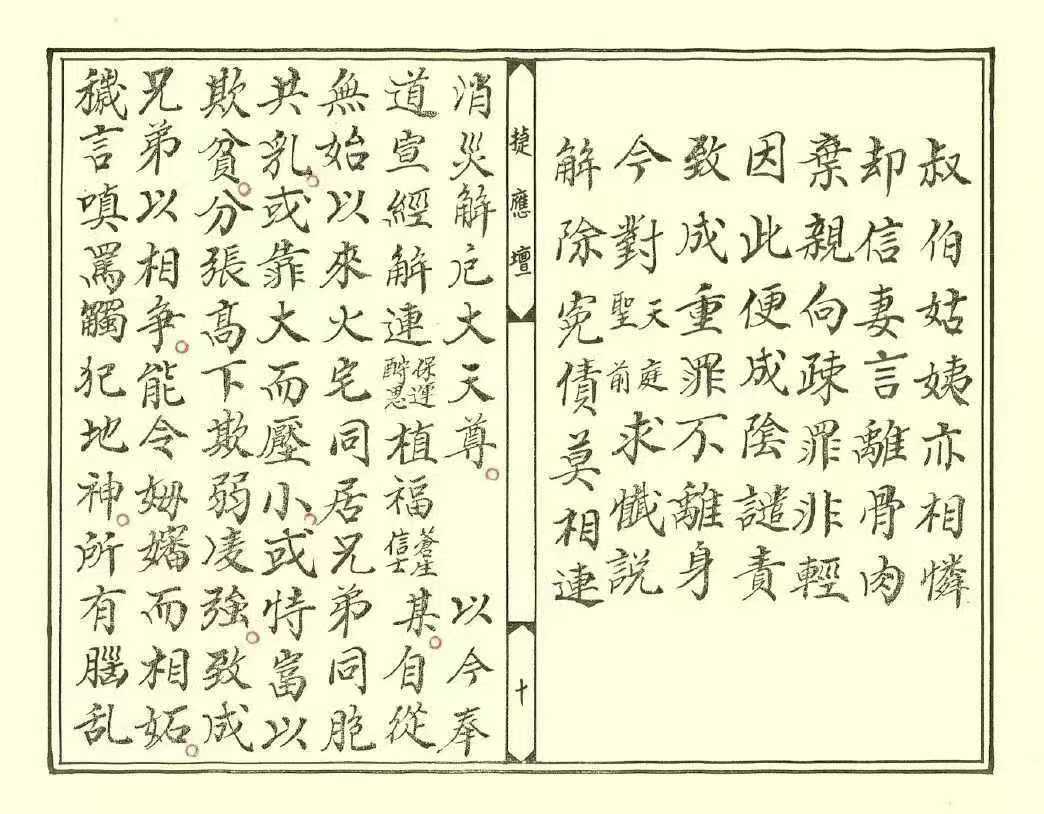 叔伯姑姨亦相憐
却信妻言離骨肉
棄親向疎罪非輕
因此便成陰譴責
致成重罪不離身
今對天庭聖前求懺説
解除寃債莫相連
捷應壇
十
消災解厄大天尊。以今奉
道宣經解連保運酧恩植福蒼生信士某。自從
無始以來火宅同居兄弟同胞
共乳。或靠大而壓小。或恃富以
欺貧。分張高下欺弱凌強。致成
兄弟以相争。能令妯嬸而相妬。
穢言嗔罵觸犯地神。所有腦乱